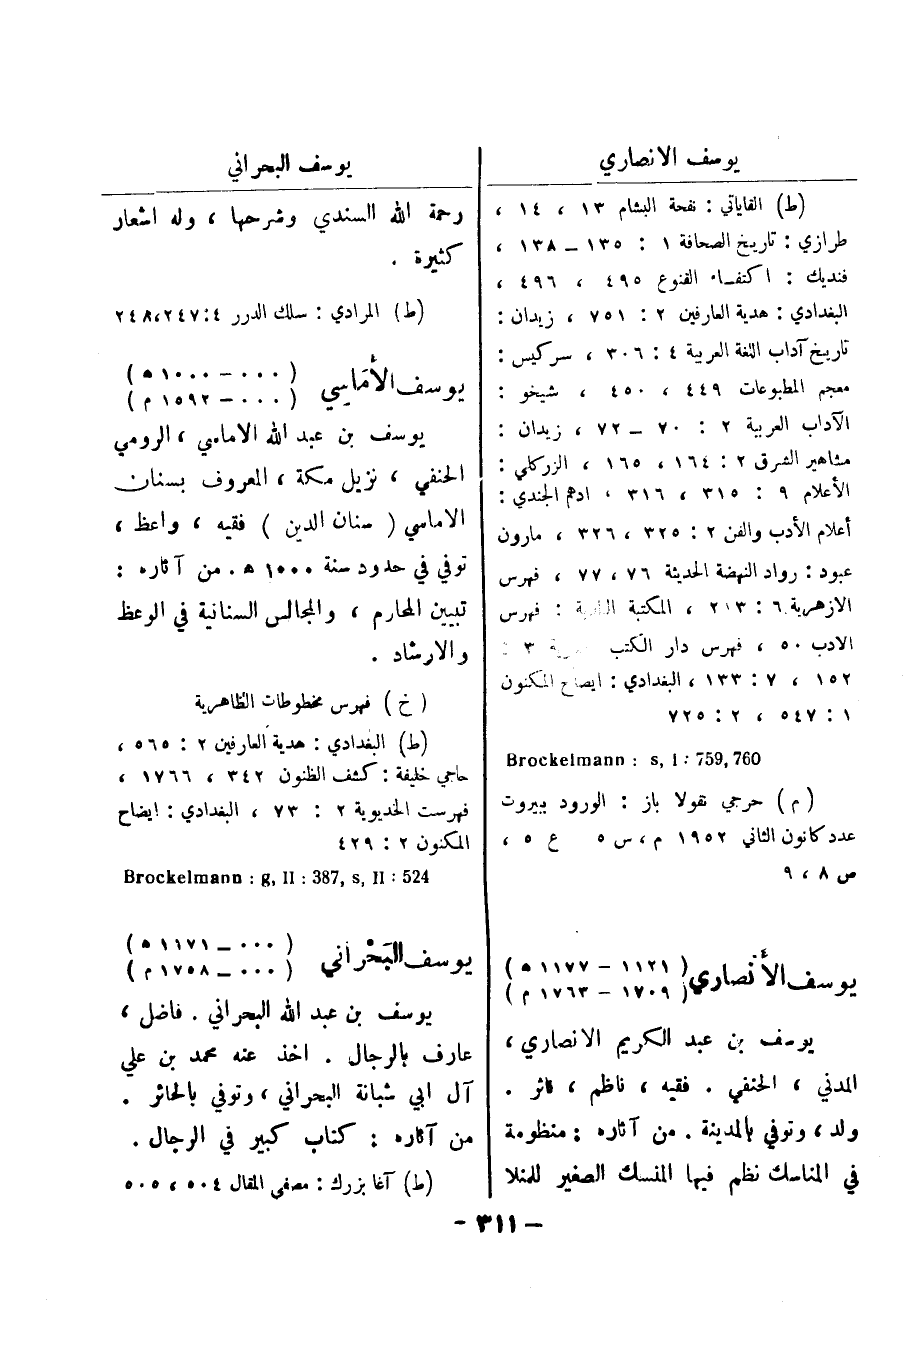 يوسف الانصاري
(ط) القاياتي : نفحة البشام ١٣ ، ١٤ ،
طرازي : تاريخ الصحافة ١ : ١٣٥ – ١٣٨ ،
فنديك : اكتفاء القنوع ٤٩٥ ، ٤٩٦ ،
البغدادي : هدية العارفين ٢ : ٧٥١ ، زيدان :
تاريخ آداب اللغة العربية ٤ : ٣٠٦ ، سركيس :
معجم المطبوعات ٤٤٩ ، ٤٥٠ ، شيخو :
الآداب العربية ٢ : ٧٠ – ٧٢ ، زيدان :
مشاهير الشرق ٢ : ١٦٤ ، ١٦٥ ، الزركلي :
الأعلام ٩ : ٣١٥ ، ٣١٦ ، ادهم الجندي :
أعلام الأدب والفن ٢ : ٣٢٥ ، ٣٢٦ ، مارون
عبود : رواد النهضة الحديثة ٧٦ ، ٧٧ ، فهرس
الازهرية ٦ : ٢١٣ ، المكتبة : فهرس
الادب ٥٠ ، فهرس دار الكتب ٣ :
١٥٢ ، ٧ : ١٣٣ ، البغدادي : ايضاح المكنون
١ : ٥٤٧ ، ٢ : ٧٢٥
Brockelmann : s, I : 759, 760
(م) جرجي نقولا باز : الورود بيروت
عدد كانون الثاني ١٩٥٢ م ، س ٥ ع ٥ ،
ص ٨ ، ٩
يوسف الأنصاري (١١٢١ – ١١٧٧ ه)
(١٧٠٩ – ١٧٦٣ م)
يوسف بن عبد الكريم الانصاري ،
المدني ، الحنفي . فقيه ، ناظم ، ناثر .
ولد ، وتوفي بالمدينة . من آثاره : منظومة
في المناسك نظم فيها المنسك الصغير للمنلا
يوسف البحراني
رحمة الله االسندي وشرحها ، وله اشعار
كثيرة .
(ط) المرادي : سلك الدرر ٤ : ٢٤٧ ، ٢٤٨
يوسف الأماسي (٠٠٠ – ١٠٠٠ ه)
(٠٠٠ – ١٥٩٢ م)
يوسف بن عبد الله الاماسي ، الرومي
الحنفي ، نزيل مكة ، المعروف بسنان
الاماسي ( سنان الدين ) فقيه ، واعظ ،
توفي في حدود سنة ١٠٠٠ ه . من آثاره :
تبيين المحارم ، والمجالس السنانية في الوعظ
والارشاد .
(خ) فهرس مخطوطات الظاهرية
(ط) البغدادي : هدية العارفين ٢ : ٥٦٥ ،
حاجي خليفة : كشف الظنون ٣٤٢ ، ١٧٦٦ ،
فهرست الخديوية ٢ : ٧٣ ، البغدادي : ايضاح
المكنون ٢ : ٤٢٩
Brockelmann : g, II : 387, s, II : 524
يوسف البَحْراني (٠٠٠ – ١١٧١ ه)
(٠٠٠ – ١٧٥٨ م)
يوسف بن عبد الله البحراني . فاضل ،
عارف بالرجال . اخذ عنه محمد بن علي
آل ابي شبانة البحراني ، وتوفي بالحائر .
من آثاره : كتاب كبير في الرجال .
(ط) آغا بزرك : مصفى المقال ٥٠٤ ، ٥٠٥
– ٣١١ –